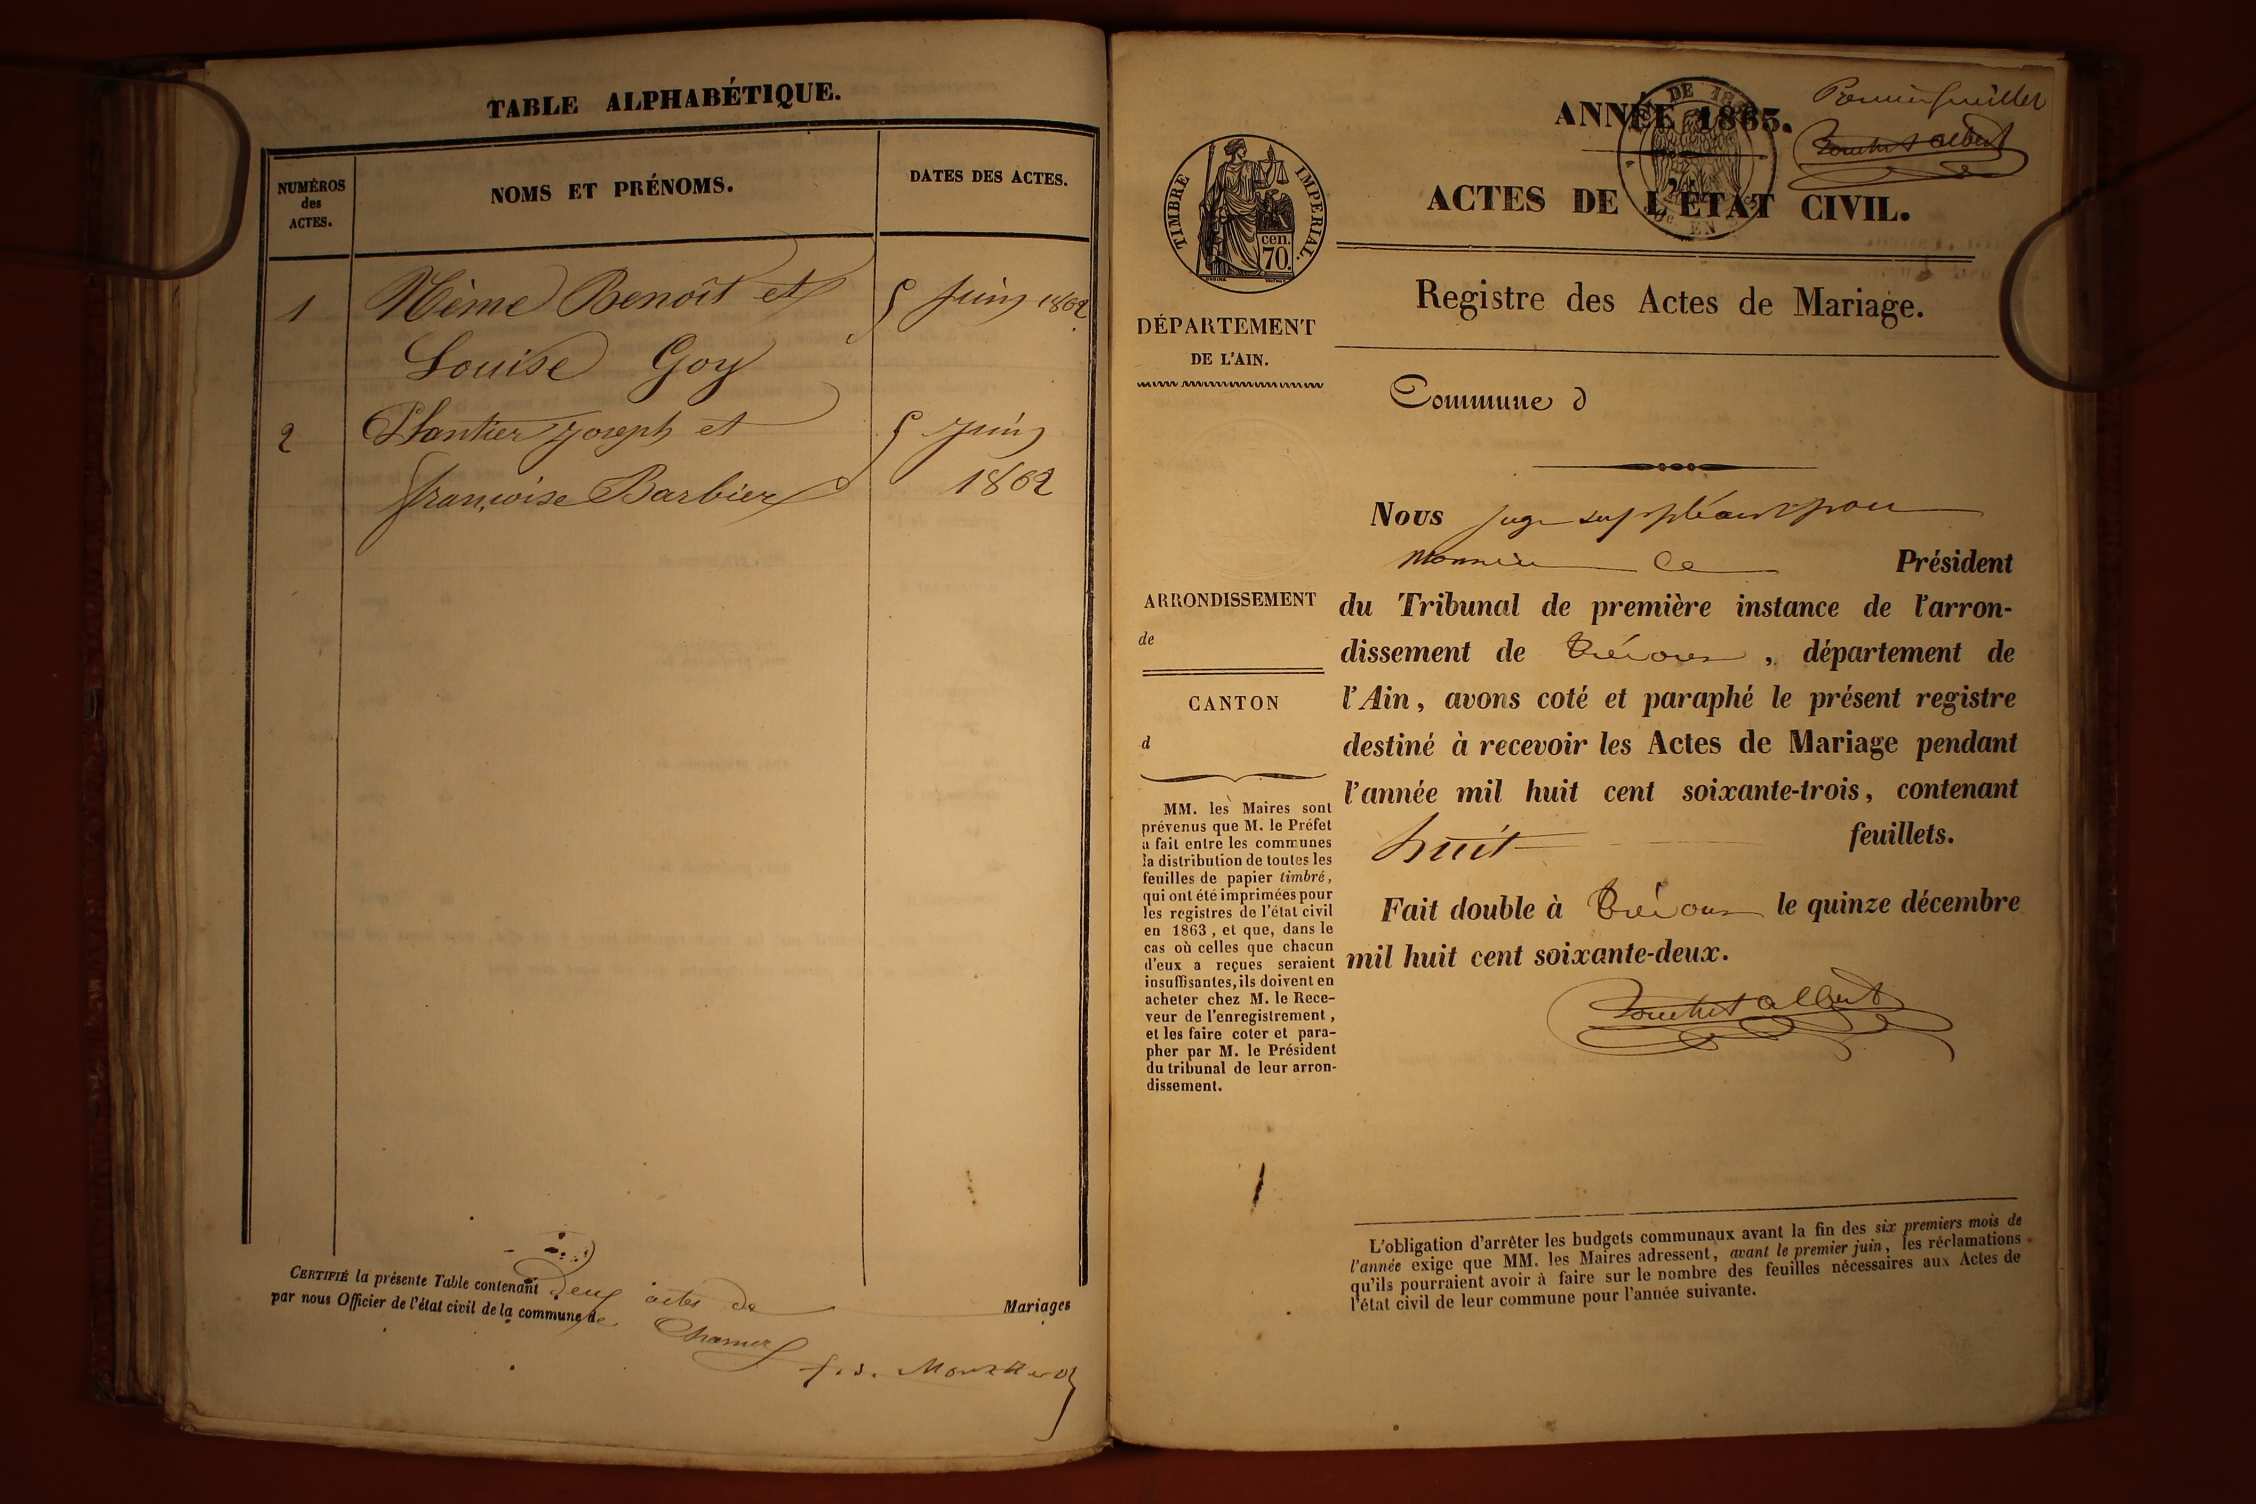 TABLE ALPHABÉTIQUE.
NUMÉROS
des
ACTES.
NOMS ET PRÉNOMS.
DATES DES ACTES.
1 Benoît et 5 juin 1862
Louise Goy
2 Plantier joseph et 5 juin
françoise Barbier 1862
CERTIFIÉ la présente Table contenant deux actes de Mariages
par nous Officier de l'état civil de la commune de
ANNÉE 1863.
Premier feuillet
ACTES DE L'ÉTAT CIVIL.
TIMBRE IMPÉRIAL.
cen.
70.
Registre des Actes de Mariage.
DÉPARTEMENT
DE L'AIN.
Commune d
Nous juge suppléant pour
Monsieur le Président
ARRONDISSEMENT
de
CANTON
d
du Tribunal de première instance de l'arron-
dissement de Trévoux, département de
l'Ain, avons coté et paraphé le présent registre
destiné à recevoir les Actes de Mariage pendant
l'année mil huit cent soixante-trois, contenant
huit feuillets.
Fait double à Trévoux le quinze décembre
mil huit cent soixante-deux.
MM. les Maires sont
prévenus que M. le Préfet
a fait entre les communes
la distribution de toutes les
feuilles de papier timbré,
qui ont été imprimées pour
les registres de l'état civil
en 1863, et que, dans le
cas où celles que chacun
d'eux a reçues seraient
insuffisantes, ils doivent en
acheter chez M. le Rece-
veur de l'enregistrement,
et les faire coter et para-
pher par M. le Président
du tribunal de leur arron-
dissement.
L'obligation d'arrêter les budgets communaux avant la fin des six premiers mois de
l'année exige que MM. les Maires adressent, avant le premier juin, les réclamations
qu'ils pourraient avoir à faire sur le nombre des feuilles nécessaires aux Actes de
l'état civil de leur commune pour l'année suivante.